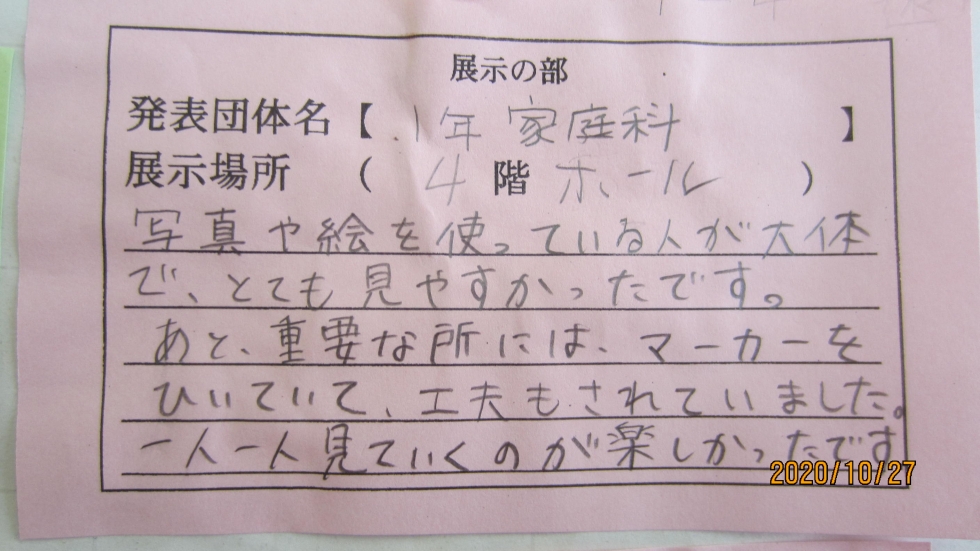 展示の部
発表団体名【 1年 家庭科 】
展示場所 ( 4 階 ホール )
写真や絵を使っている人が大体
で、とても見やすかったです。
あと、重要な所には、マーカーを
ひいていて、工夫もされていました。
一人一人見ていくのが楽しかったです
2020/10/27